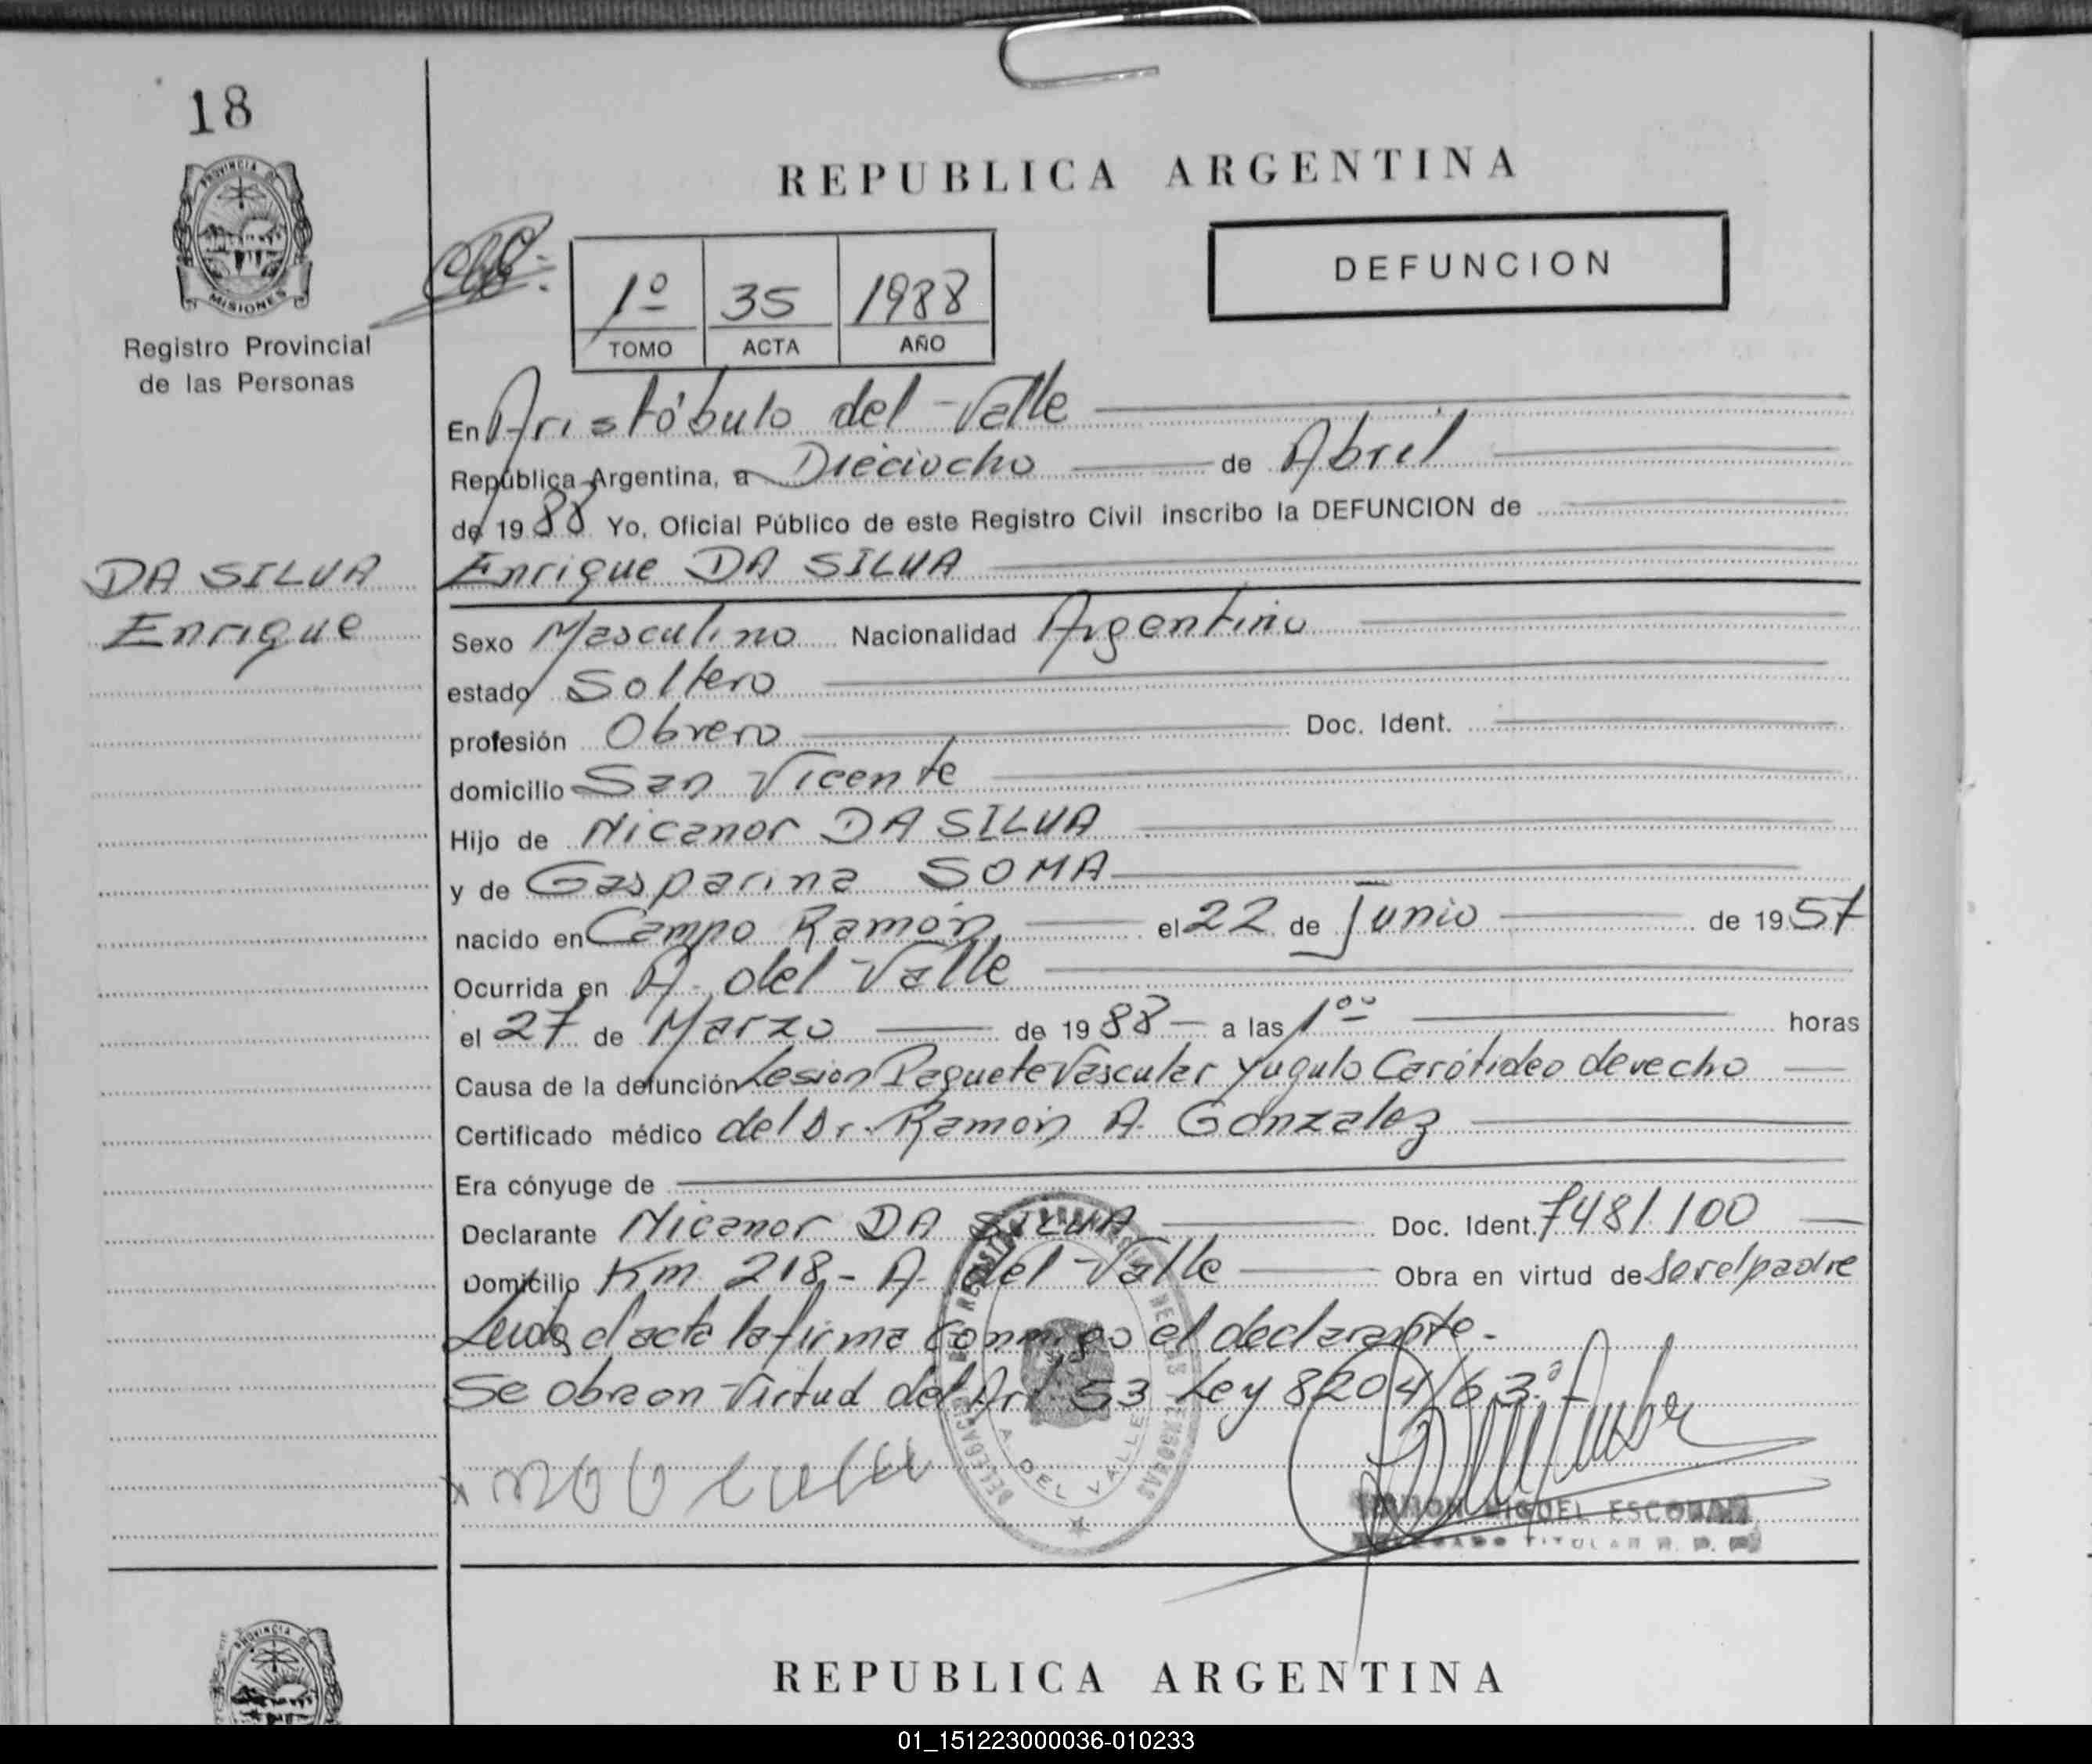 18
PROVINCIA DE
MISIONES
Registro Provincial
de las Personas
REPUBLICA ARGENTINA
DEFUNCION
1º 35 1988
TOMO ACTA AÑO
En Aristóbulo del Valle
República Argentina, a Dieciocho de Abril
de 1988 Yo, Oficial Público de este Registro Civil inscribo la DEFUNCION de
DA SILVA
Enrique
Enrique DA SILVA
Sexo Masculino Nacionalidad Argentino
estado Soltero
profesión Obrero Doc. Ident.
domicilio San Vicente
Hijo de Nicanor DA SILVA
y de Gasparina SOMA
nacido en Campo Ramón el 22 de Junio de 1957
Ocurrida en A. del Valle
el 27 de Marzo de 1988 a las 1ºº horas
Causa de la defunción Lesion Paquete Vascular Yugulo Carótideo derecho
Certificado médico del Dr. Ramón A. Gonzalez
Era cónyuge de
Declarante Nicanor DA SILVA Doc. Ident. 7481100
Domicilio Km 218 - A. del Valle Obra en virtud de Ser el padre
Leida el acta la firma conmigo el declarante.
Se obra en Virtud del Art. 53 Ley 8204/63.
A. DEL VALLE
MIGUEL ESCOBAR
TITULAR R. P.
PROVINCIA DE
REPUBLICA ARGENTINA
01_151223000036-010233